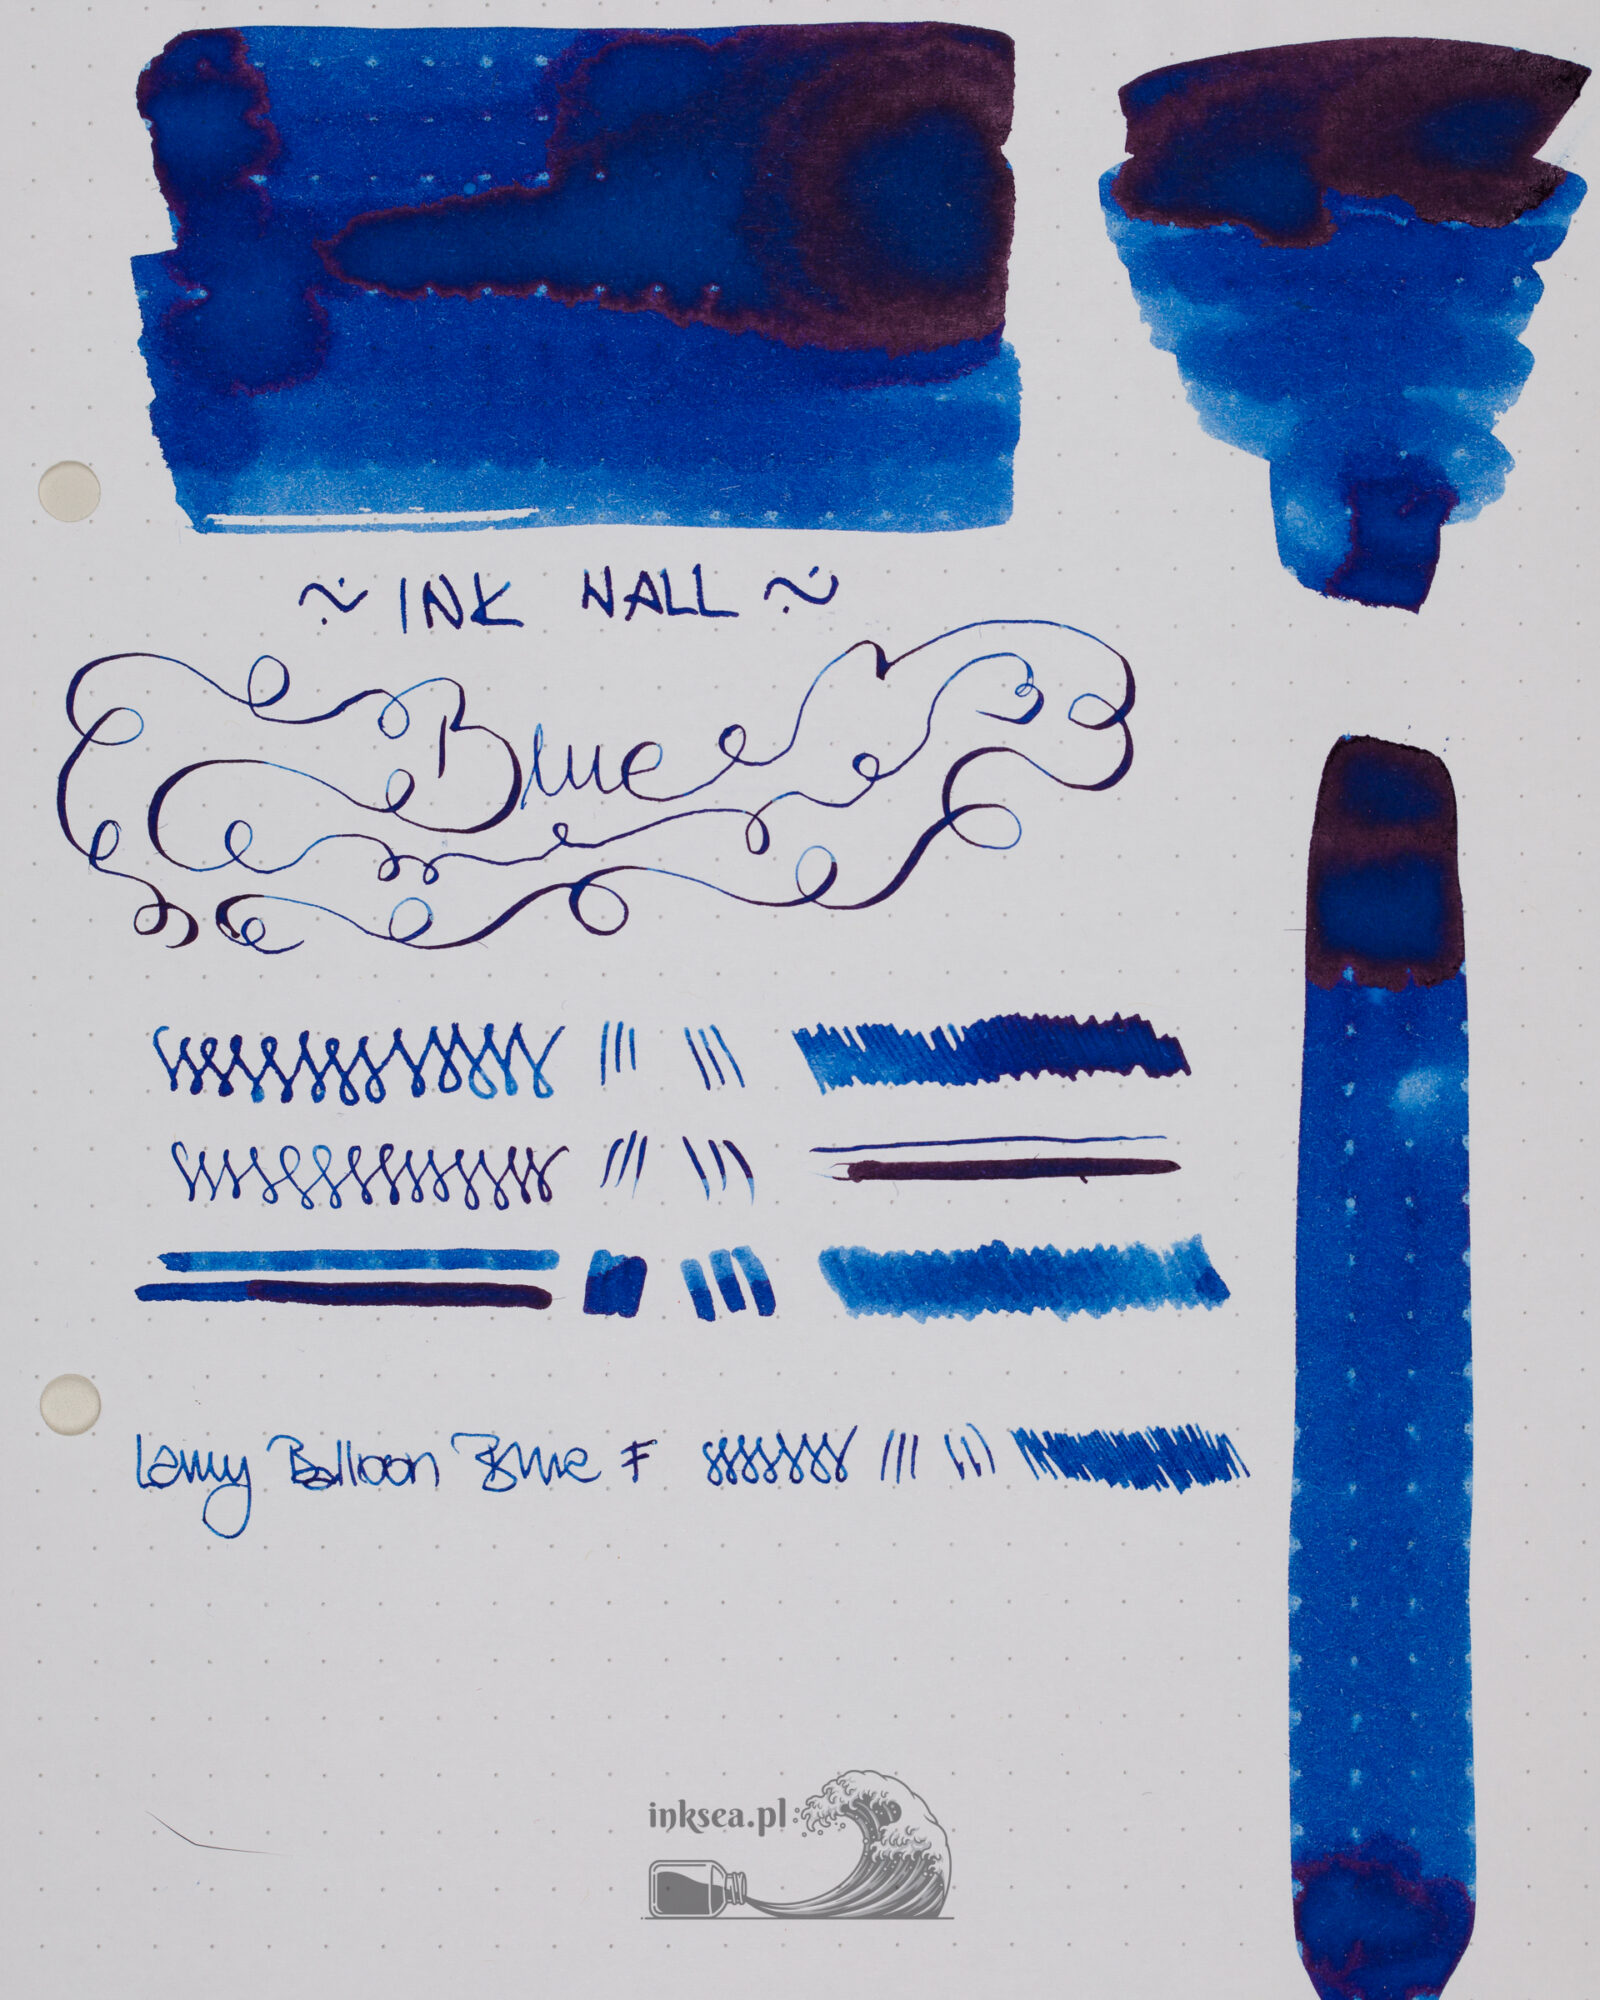 ~ INK HALL ~
Blue
Lamy Balloon Blue F
inksea.pl